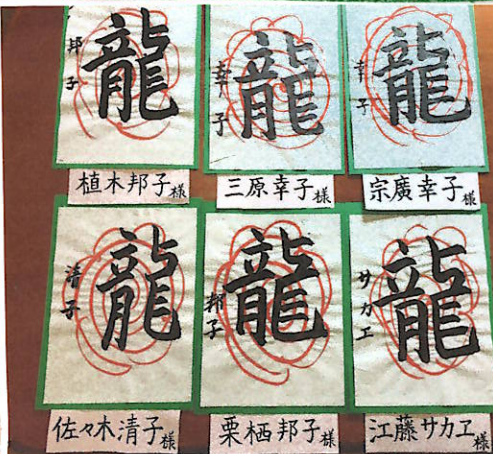 龍
邦子
植木邦子様
龍
幸子
三原幸子様
龍
幸子
宗廣幸子様
龍
清子
佐々木清子様
龍
邦子
栗栖邦子様
龍
サカヱ
江藤サカヱ様